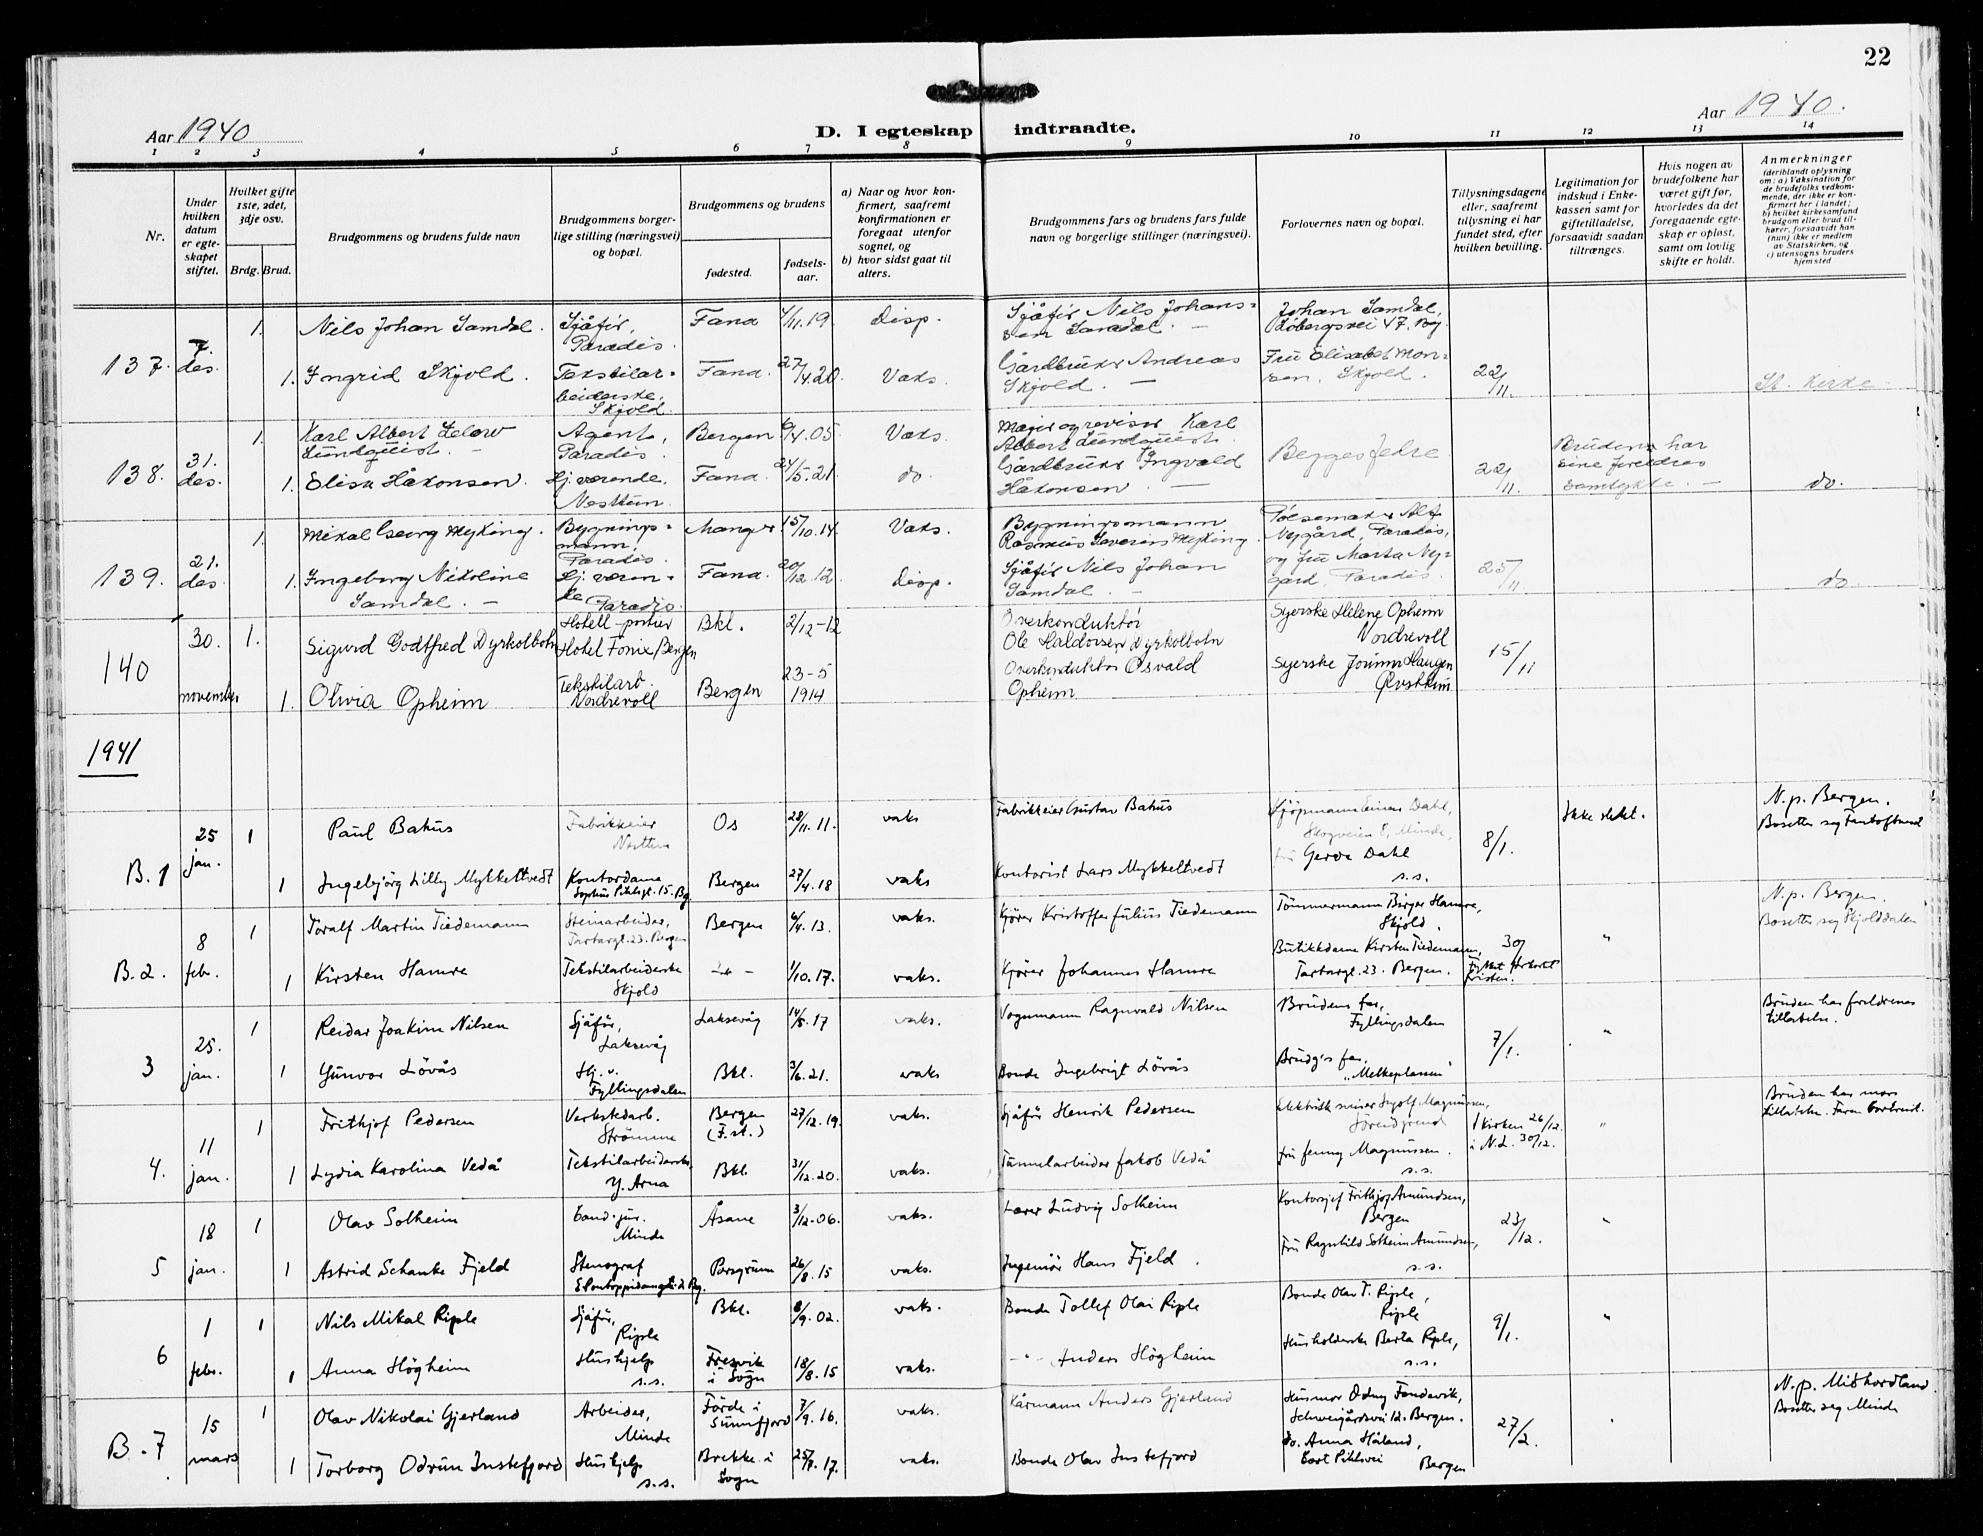 22
Aar 1940
D. I egteskap indtraadte.
Aar 1940.
1 2 3 4 5 6 7 8 9 10 11 12 13 14
Nr.
Under hvilken datum er egteskapet stiftet.
Hvilket gifte 1ste, 2det, 3dje osv.
Brdg. Brud.
Brudgommens og brudens fulde navn
Brudgommens borgerlige stilling (næringsvei) og bopæl.
Brudgommens og brudens
fødested.
fødselsaar.
a) Naar og hvor konfirmert, saafremt konfirmationen er foregaat utenfor sognet, og
b) hvor sidst gaat til alters.
Brudgommens fars og brudens fars fulde navn og borgerlige stillinger (næringsvei).
Forlovernes navn og bopæl.
Tillysningsdagene eller, saafremt tillysning ei har fundet sted, efter hvilken bevilling.
Legitimation for indskud i Enkekassen samt for giftetilladelse, forsaavidt saadan tiltrænges.
Hvis nogen av brudefolkene har været gift før, hvorledes da det foregaaende egteskap er opløst, samt om lovlig skifte er holdt.
Anmerkninger (deriblandt oplysning om: a) Vaksination for de brudefolks vedkommende, der ikke er konfirmert her i landet; b) hvilket kirkesamfund brudgom eller brud tilhører, forsaavidt han (hun) ikke er medlem av Statskirken, og c) utensogns bruders hjemsted
137. 7. des. 1. Nils Johan Samdal. Sjåfør, Paradis. Fana 4/11.19 Disp. Sjåfør Nils Johansen Samdal. — Johan Samdal, Løbergsvei 47. Bg.
1. Ingrid Skjold. Tekstilarbeiderske, Skjold. Fana. 27/4.20. Vaks. Gårdbruker Andreas Skjold. — Fru Elisabet Monsen, Skjold. 22/11. St. kirke
138. 31. des. 1. Karl Albert Lundquist. — Agent, Paradis. Bergen 05 Vaks. Karl Albert Lundquist. Begges fedre
1. Elisa Håkonsen. Hj. værende, Nesttun. Fana. 24/5.21. do. Gårdbruker Ingvald Håkonsen — 22/11. Bruden har sine foreldres samtykke. — do.
139. 21. des. 1. Mikal Georg Myking. Bygningsmann, Paradis. Manger 15/10.14. Vaks. Bygningsmann Rasmus Severin Myking. Pølsemaker Alf Nygård, Paradis,
1. Ingeborg Nikoline Samdal. — Hj. værende Paradis. Fana. 20/12.12. Disp. Sjåfør Nils Johan Samdal. — og fru Marta Nygård, Paradis. 25/11 do
140 30. november 1. Sigurd Godtfred Dyrkolbotn Hotell-portier Hotel Fønix, Bergen Bkl. 2/12-12 Overkonduktør Ole Haldorsen Dyrkolbotn Syerske Helene Opheim Nordrevoll
1. Olivia Opheim Tekstilarb. Nordrevoll Bergen 23-5 1914 Overkonduktør Osvald Opheim. Syerske Jorunn Haugen 15/11
1941
B.1 25 jan. 1 Paul Bahus Fabrikkeier Nesttun Os 28/11.11. vaks Fabrikkeier Gustav Bahus Kjøpmann Einar Dahl, Skogveien 8, Minde, Ikke slekt. N.p. Bergen. Bosetter seg Fantoftsund
1 Ingebjörg Lilly Mykkeltvedt Kontordame Sophus Pihlsgt. 15. Bg. Bergen 27/4.18 vaks Kontorist Lars Mykkeltvedt fru Gerda Dahl s.s. 8/1.
B.2. 8 feb. 1 Toralf Martin Tiedemann Steinarbeider, Tartargt. 23. Bergen Bergen 6/4.13. vaks. Kjører Kristoffer Julius Tiedemann Tömmermann Birger Hamre, Skjold. N.p. Bergen. Bosetter seg Skjolddalen
1 Kirsten Hamre Tekstilarbeiderske Skjold -"- 1/10.17. vaks. Kjører Johannes Hamre Butikkdame Kirsten Tiedemann, Tartargt. 23. Bergen. Fylket forkortet fristen. "
3 25. jan. 1 Reidar Joakim Nilsen Sjåför, Laksevåg Laksevåg 14/5.17 vaks. Vognmann Ragnvald Nilsen Brudens far, Fyllingsdalen Bruden har foreldrenes tillatelse.
1 Gunvor Lövås Hj. v. Fyllingsdalen Bkl. 3/6.21. vaks Bonde Ingebrigt Lövås Brudg's far, "Melkeplassen" 7/1. "
4. 11 jan. 1 Frithjof Pedersen Verkstedarb. Strømme Bergen (F.st.) 27/12.19. vaks. Sjåför Henrik Pedersen Magnussen, I kirken 26/12. i N.L. 30/12. " Bruden har mors tillatelse.
1 Lydia Karolina Vedå Tekstilarbeiderske, Y. Arna Bkl 31/12.20. vaks. Tunnelarbeider Jakob Vedå fru Jenny Magnussen. s.s.
5 18 jan. 1 Olav Solheim Cand. jur. Minde Åsane 3/12-06. vaks. Lærer Ludvig Solheim Kontorsjef Frithjof Amundsen, Bergen 23/12. "
1 Astrid Schanke Fjeld Stenograf Porsgrunn 26/8.15 vaks. Ingeniör Hans Fjeld. Fru Ragnhild Solheim Amundsen, s.s.
6 1 febr. 1 Nils Mikal Riple Sjåför, Riple Bkl. 8/9.02. vaks. Bonde Tollef Olai Riple Bonde Olav T. Riple, Riple 9/1. "
1 Anna Högheim Hushjelp s.s. Fresvik i Sogn 18/8.15 vaks. -"- Anders Högheim Husholderske Berta Riple, s.s.
B.7 15 mars 1 Olav Nikolai Gjerland Arbeider, Minde Förde i Sunnfjord 7/9.16. vaks. Kårmann Anders Gjerland Husmor Odny Fondevik, Schweigårdsvei 12. Bergen. N.p. Midhordland. Bosetter seg Minde
1 Torborg Odrun Instefjord Hushjelp s.s. Brekke i Sogn 25/7.17. vaks. Bonde Olav Instefjord Do. Anna Håland, Carl Pihlsvei Bergen 27/2.